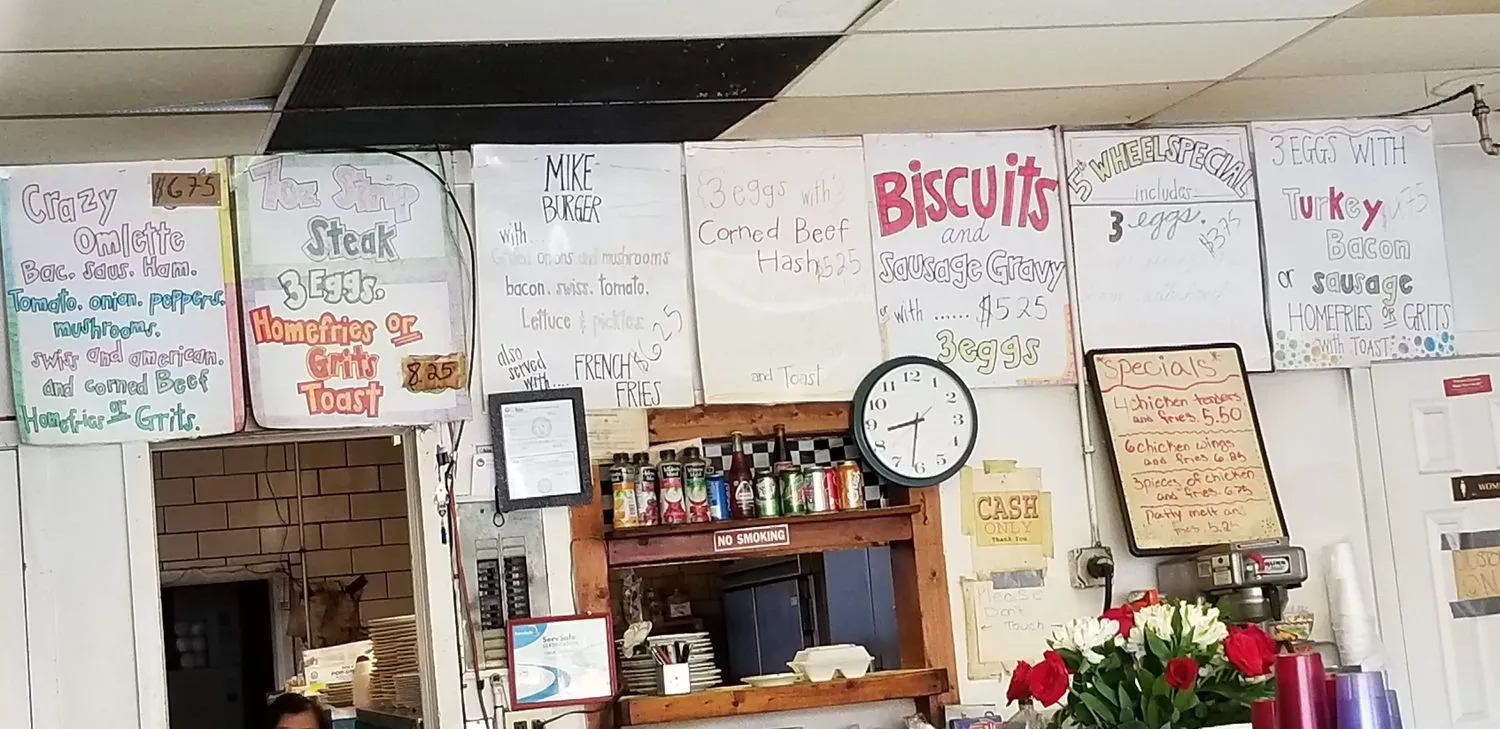 Crazy $6.75
Omlette
Bac. saus. Ham.
Tomato. onion. peppers.
mushrooms.
swiss and american.
and corned Beef
Homefries or Grits.
7oz Strip
Steak
3 Eggs.
Homefries or
Grits
Toast
8.25
MIKE
BURGER
with....
Grilled onions and mushrooms
bacon. swiss. tomato.
Lettuce & pickles
also
served
with....
FRENCH
FRIES
3 eggs with
Corned Beef
Hash $5.25
and Toast
BISCUITS
and
Sausage Gravy
with ...... $5.25
3eggs
5th WHEEL SPECIAL
includes:
3 eggs.
3 EGGS WITH
Turkey
Bacon
or sausage
HOMEFRIES OR GRITS
with TOAST
Specials
4 chicken tenders
and fries. 5.50
6 chicken wings
and fries.
3 pieces of chicken
and fries. 6.75
Patty melt and
fries.
12
11
1
10
2
9
3
8
4
7
5
6
NO SMOKING
CASH
ONLY
Thank You
Please
Don't
Touch
ServSafe
CERTIFICATION
WOM